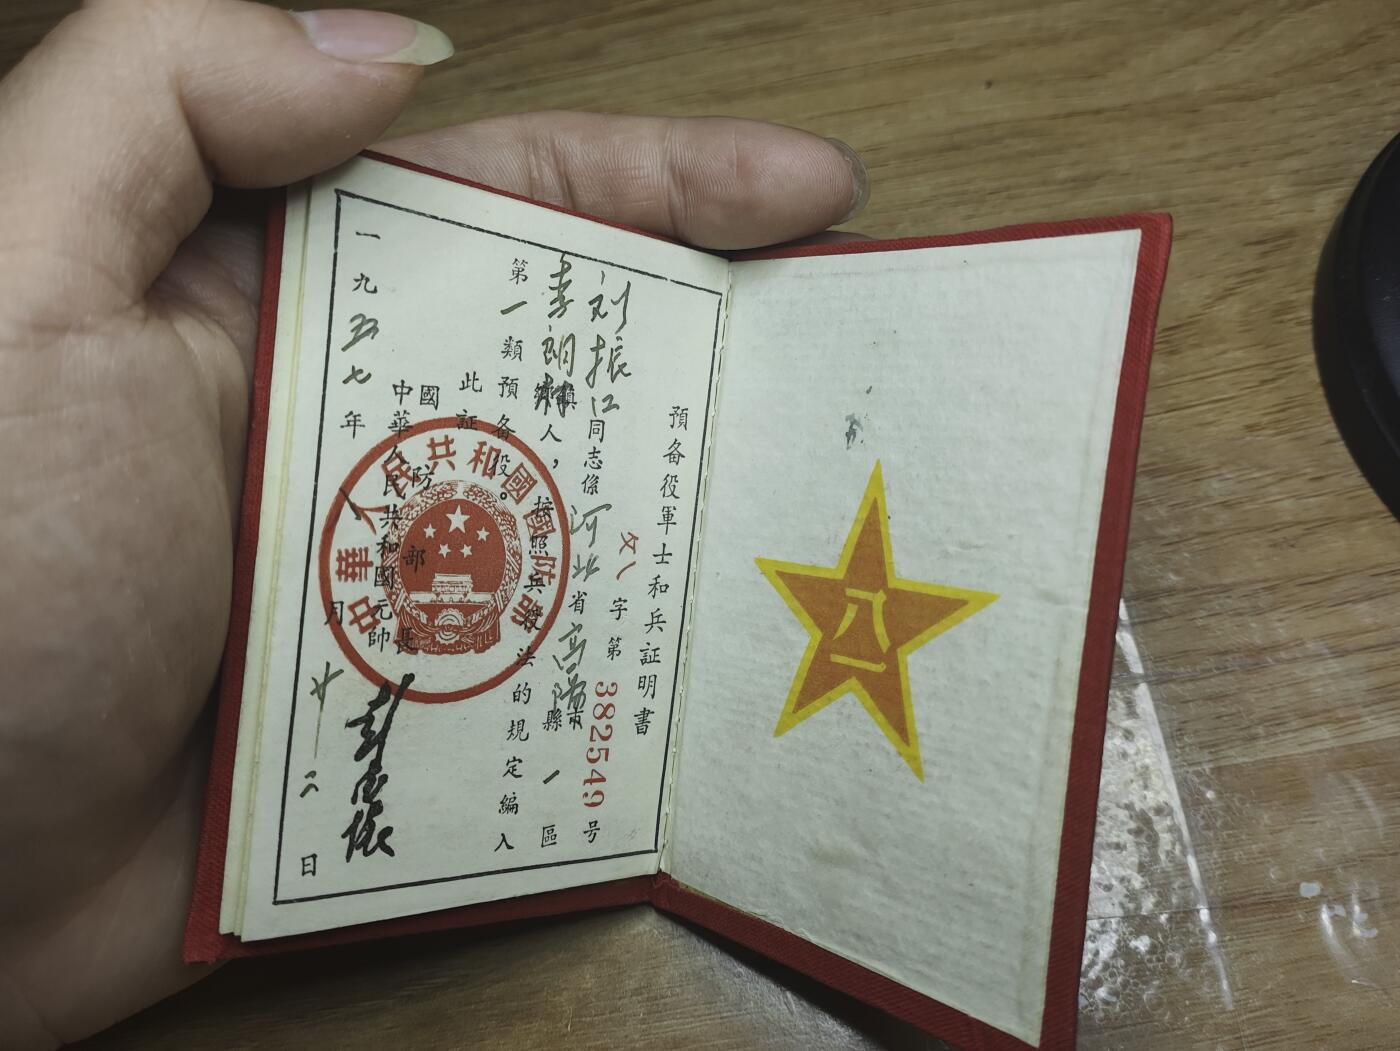 預备役軍士和兵証明書
字第382549号
刘振江同志係河北省高陽縣市一區
李朗村鄉鎮人，按照兵役法的規定編入
第一類預备役。
此証
國防部長
中華人民共和國元帥
彭德懷
一九五七年八月廿二日
中華人民共和國國防部
八一